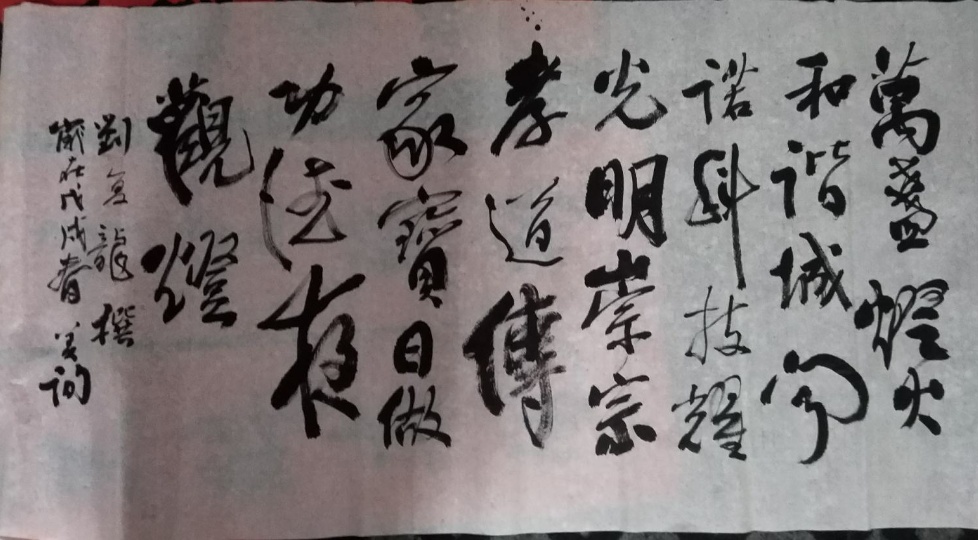 萬盞燈火
和諧城
諾科技耀
光明崇宗
孝道傳
家寶日做
功德夜
觀燈
劉龍撰
歲在戊戌春